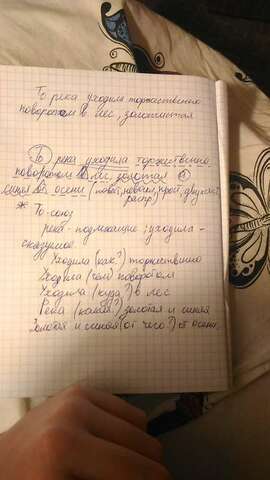 То река уходила торжественно
поворотом в лес, золотистая
То река уходила торжественно
поворотом в лес, золотая и
синяя от осени (повест, невоскл, прост, двусост,
распр.)
* То-союз
река - подлежащие; уходила -
сказуемое
Уходила (как?) торжественно
Уходила (чем?) поворотом
Уходила (куда?) в лес
Река (какая?) золотая и синяя
Золотая и синяя (от чего?) от осени